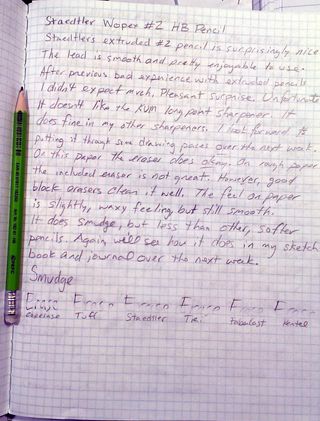 Staedtler Wopex #2 HB Pencil
Staedtlers extruded #2 pencil is surprisingly nice
The lead is smooth and pretty enjoyable to use.
After previous bad experience with extruded pencils
I didn't expect much. Pleasant surprise. Unfortunate
It doesn't like the KUM long point sharpener. It
does fine in my other sharpeners. I look forward to
putting it through some drawing paces over the next week.
On this paper the eraser does okay. On rough paper
the included eraser is not great. However, good
block erasers clean it well. The feel on paper
is slightly, waxy feeling, but still smooth.
It does smudge, but less than other, softer
pencils. Again we'll see how it does in my sketch
book and journal over the next week.
Smudge
Tuff Staedtler Pentel